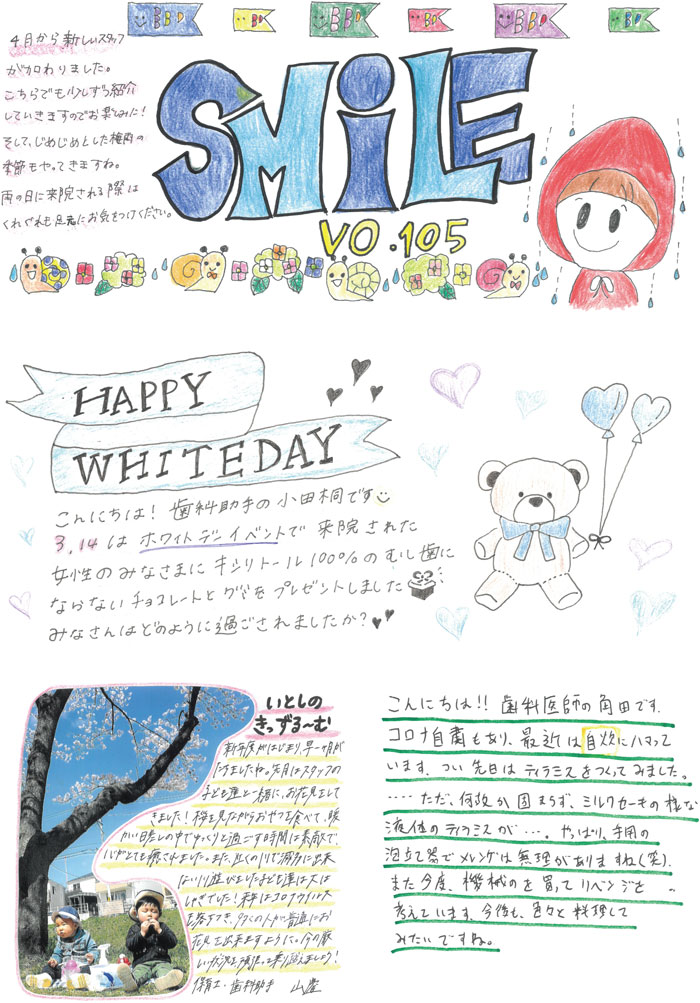 4月から新しいスタッフ
が加わりました。
こちらでも少しずつ紹介
していきますのでお楽しみに!
そして、じめじめとした梅雨の
季節もやってきますね。
雨の日に来院される際は
くれぐれも足元にお気をつけください。
SMiLE
VO.105
HAPPY
WHITEDAY
こんにちは! 歯科助手の小田桐です
3.14は ホワイトデーイベントで 来院された
女性のみなさまに キシリトール100%の むし歯に
ならない チョコレートと グミを プレゼントしました
みなさんはどのように過ごされましたか?
いとしの
きっずる〜む
新年度がはじまり、早一ヶ月が
たちましたね。先月はスタッフの
子ども達と一緒に、お花見をして
きました! 桜を見ながらおやつを食べて、暖
かい日差しの中でゆっくりと過ごす時間は素敵で、
とても癒されました。また、近くの川で
川遊びをしたり子ども達は大は
しゃぎでした! 来年はコロナウイルス
も落ちつき、多くの人が普通にお
花見を出来ますように。今の厳
しい状況を頑張って乗り越えましょう!
保育士・歯科助手 山
こんにちは!! 歯科医師の角田です。
コロナ自粛もあり、最近は自炊にハマって
います。つい先日は ティラミスをつくってみました。
.... ただ、何故か固まらず、ミルクセーキの様な
液体のティラミスが…。やっぱり、手用の
泡立て器でメレンゲは無理がありますね(笑)。
また今度、機械のを買ってリベンジを
考えています。今後も、色々と料理して
みたいですね。